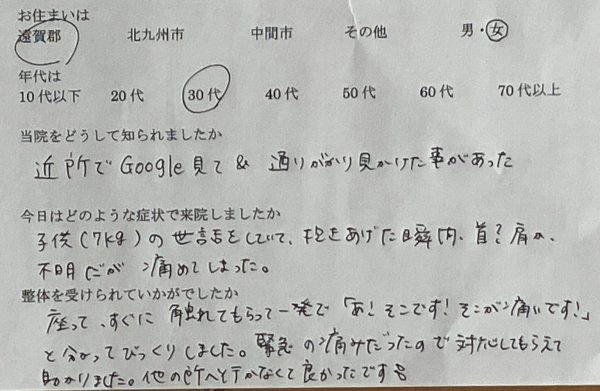 お住まいは
遠賀郡 北九州市 中間市 その他 男・女
年代は
10代以下 20代 30代 40代 50代 60代 70代以上
当院をどうして知られましたか
近所でGoogle見て & 通りがかり見かけた事があった
今日はどのような症状で来院しましたか
子供(7kg)の世話をしていて、足をあげた瞬間、首?肩か、
不明だが痛めてしまった。
整体を受けられていかがでしたか
座って、すぐに触れてもらって一発で「あ!そこです!そこが痛いです!」
と分かってびっくりしました。緊急の痛みだったので対応してもらえて
助かりました。他の所へ行かなくて良かったです